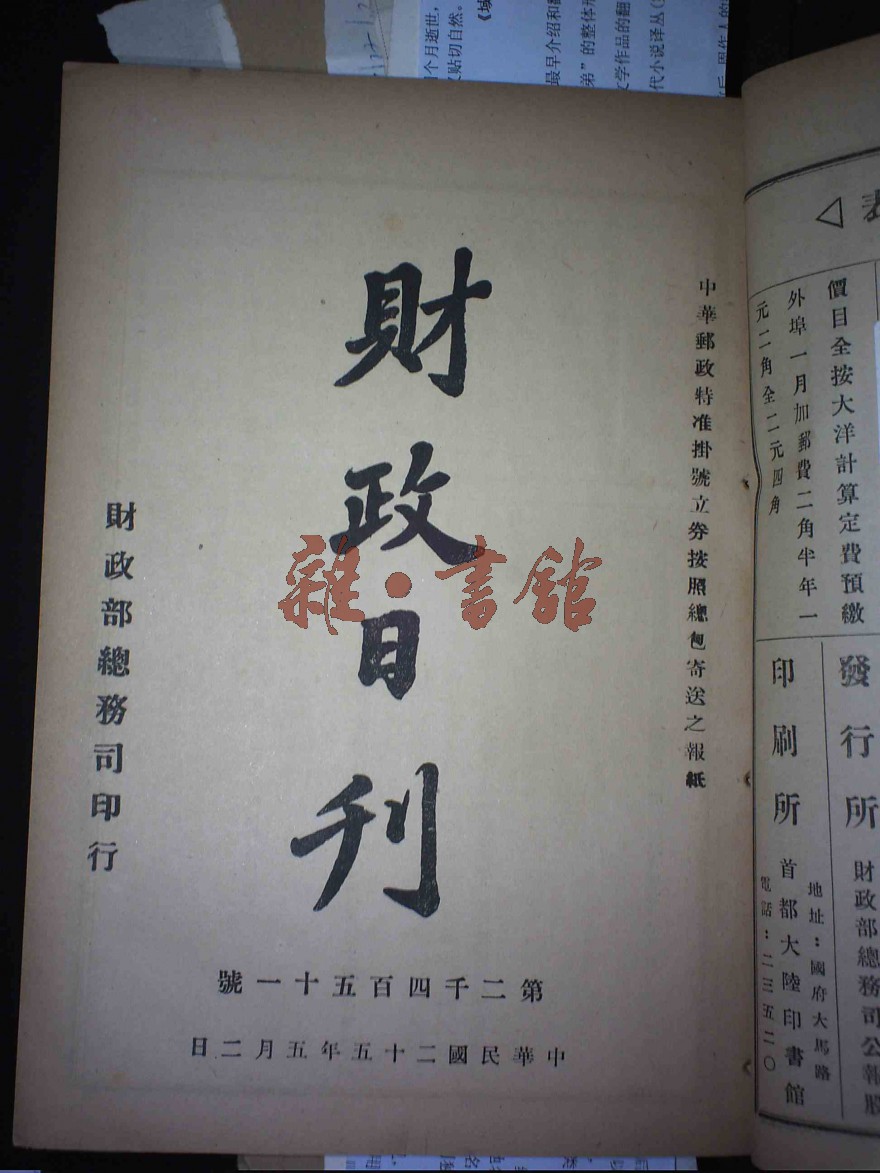 中華郵政特准掛號立券按照總包寄送之報紙
財政日刊
財政部總務司印行
第二千四百五十一號
中華民國二十五年五月二日
雜·書館
表
價目全按大洋計算定費預繳
外埠一月加郵費二角半年一
元二角全二元四角
發行所
財政部總務司公報
印刷所
地址：國府大馬路
首都大陸印書館
電話：二三五二〇
个月逝世，
又贴切自然。
最早介绍和
弟”的整体
文学作品的翻
代小说译丛